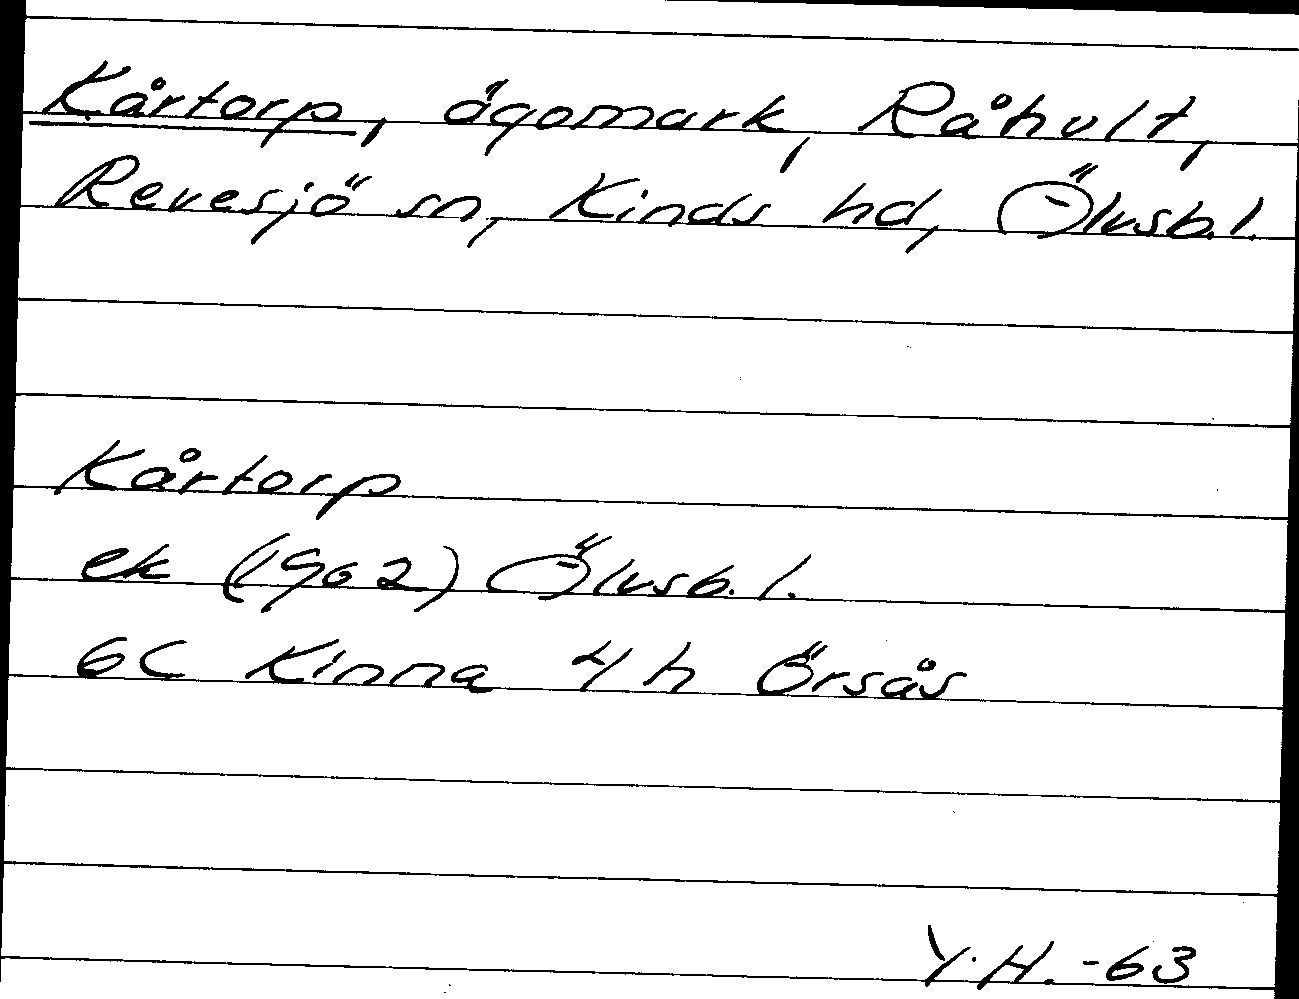 Kårtorp, ägomark, Råhult,
Revesjö sn, Kinds hd, Älvsb. l.
Kårtorp
ek (1962) Älvsb. l.
6C Kinna 4h Örsås
Y. H. -63